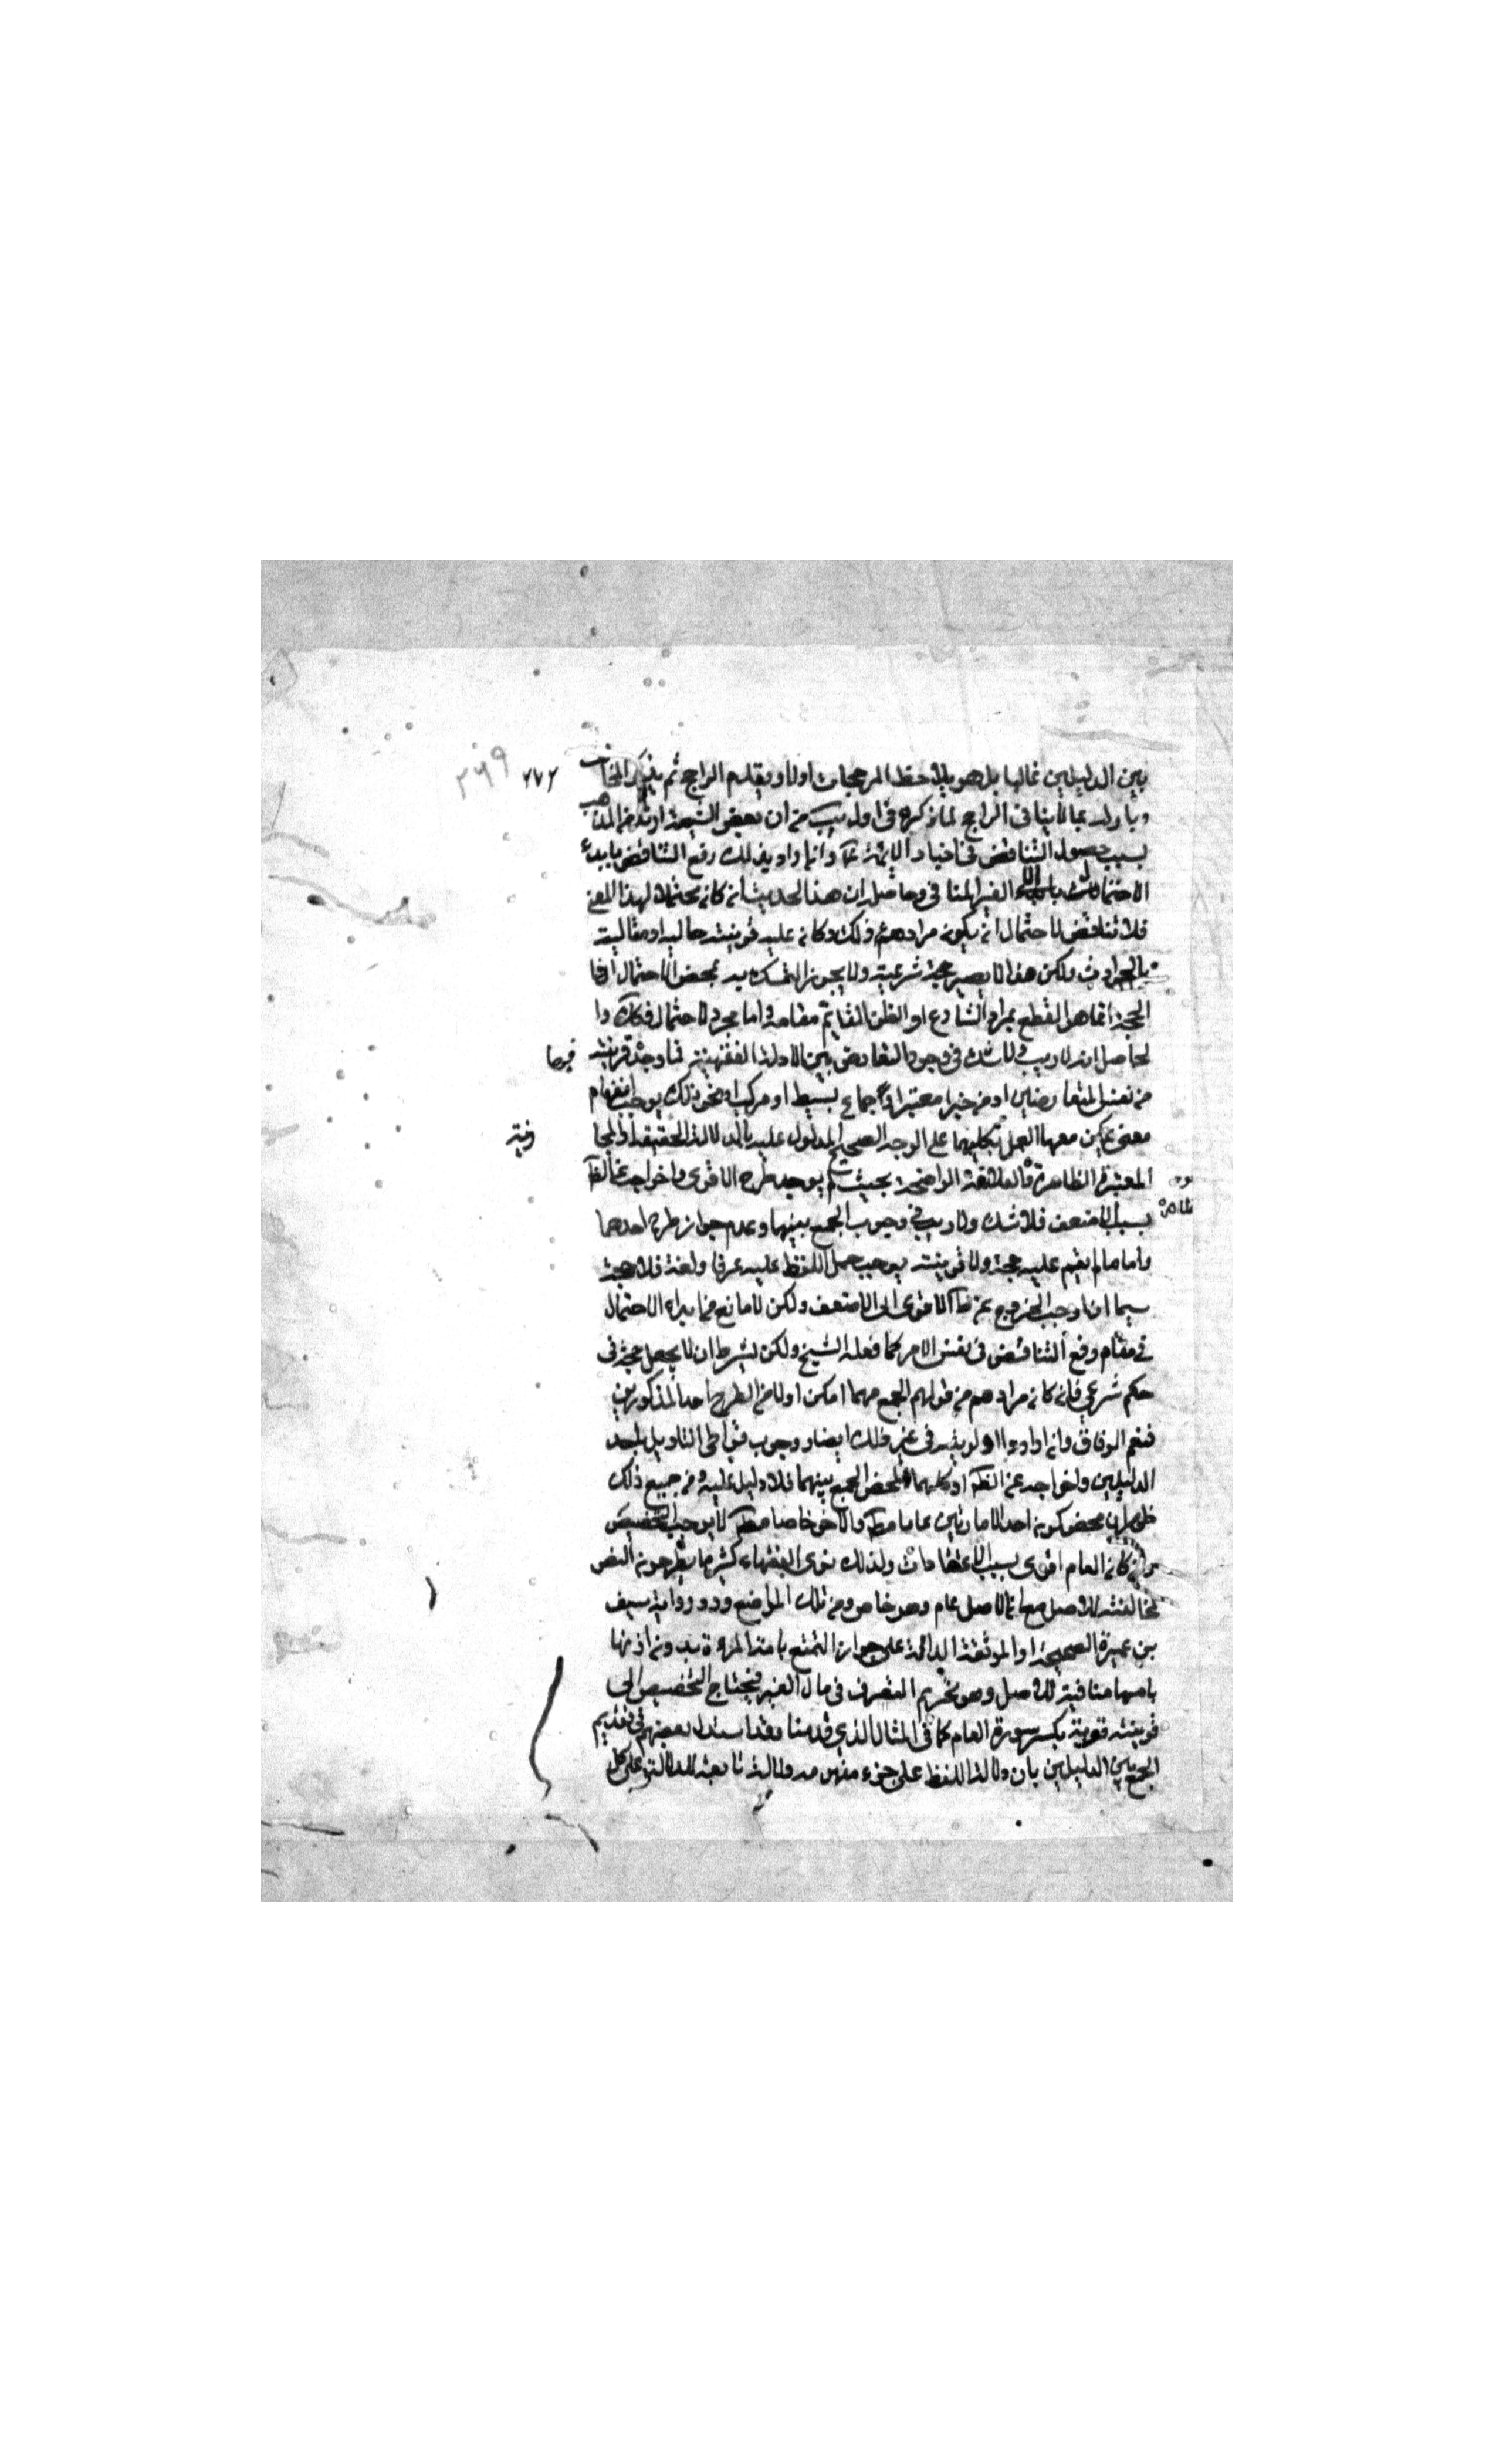 بين الدليلين غالبا بل هو يلاحظ المرجحات اولا ويقدم الراجح ثم يذكر المخالف
وياوله بما لا ينافي الراجح لما ذكره في اول يب من ان بعض الشيعة ارتد عن المذهب
بسبب حصول التناقض في اخبار الائمة ع وانما اراد بذلك رفع التناقض بابداء
الاحتمالات الغير المنافي وحاصله ان هذا الحديث ان كان محتملا لهذا المعنى
فلا تناقض لاحتمال ان يكون مرادهم ع ذلك وكان عليه قرينته حالية او مقالية
بالحوادث ولكن هذا لا يصير حجة شرعية ولا يجوز التمسك به بمحض الاحتمال اذ
الحجة انما هو القطع بمراد الشارع او الظن القايم مقامه واما مجرد الاحتمال فكلا وا
لحاصل انه لا ريب ولا شك في وجود التعارض بين الادلة الفقهية فما وجد قرينته
من نفس المتعارضين او من خبر معتبر او اجماع بسيط او مركب او نحو ذلك يوجب انفهام
معنى يمكن معها العمل بكليهما على الوجه الصحيح المدلول عليه بالدلالة الحقيقة او المجا
المعتبرة الظاهرة والعلاقة الواضحة بحيث لم يوجب طرح الاقوى واخراجه عن الظ
بسبب الاضعف فلا شك ولا ريب في وجوب الجمع بينهما وعدم جواز طرح احدهما
واما ما لم يقم عليه حجة ولا قرينته يوجب حمل اللفظ عليه عرفا ولغة فلا حجة
سيما اذا وجب الخروج عن ظ الاقوى الى الاضعف ولكن لا مانع من ابداء الاحتمال
في مقام رفع التناقض في نفس الامر كما فعله الشيخ ولكن بشرط ان لا يجعل حجة في
حكم شرعي فان كان مرادهم من قولهم الجمع مهما امكن اولى من الطرح احد المذكورين
فنعم الوفاق وان ارادوا الاولوية في غير ذلك ايضا ووجوب التاويل باحد
الدليلين واخراجه عن الظ او كليهما لمحض الجمع بينهما فلا دليل عليه ومن جميع ذلك
ظهر ان محض كون احد الامارتين عاما مط والاخر خاصا مط لا يوجب التخصيص
وان كان العام اقوى بسبب الاعتضادات ولذلك نرى الفقهاء كثيرا ما يطرحون النص
لمخالفته للاصل مع ان الاصل عام وهو خاص ومن تلك المواضع ورود رواية سيف
بن عميرة الصحيحة او الموثقة الدالة على جواز التمتع بامة المرءة بدون اذنها
بانها منافية للاصل وهو تحريم التصرف في مال الغير فيحتاج التخصيص الى
قرينته قوية بكسر سورة العام كما في المثال الذي قدمنا وقد استدل بعضهم في تقديم
الجمع بين الدليلين بان دلالة اللفظ على جزء مفهومه دلالة تابعة للدلالة على كل